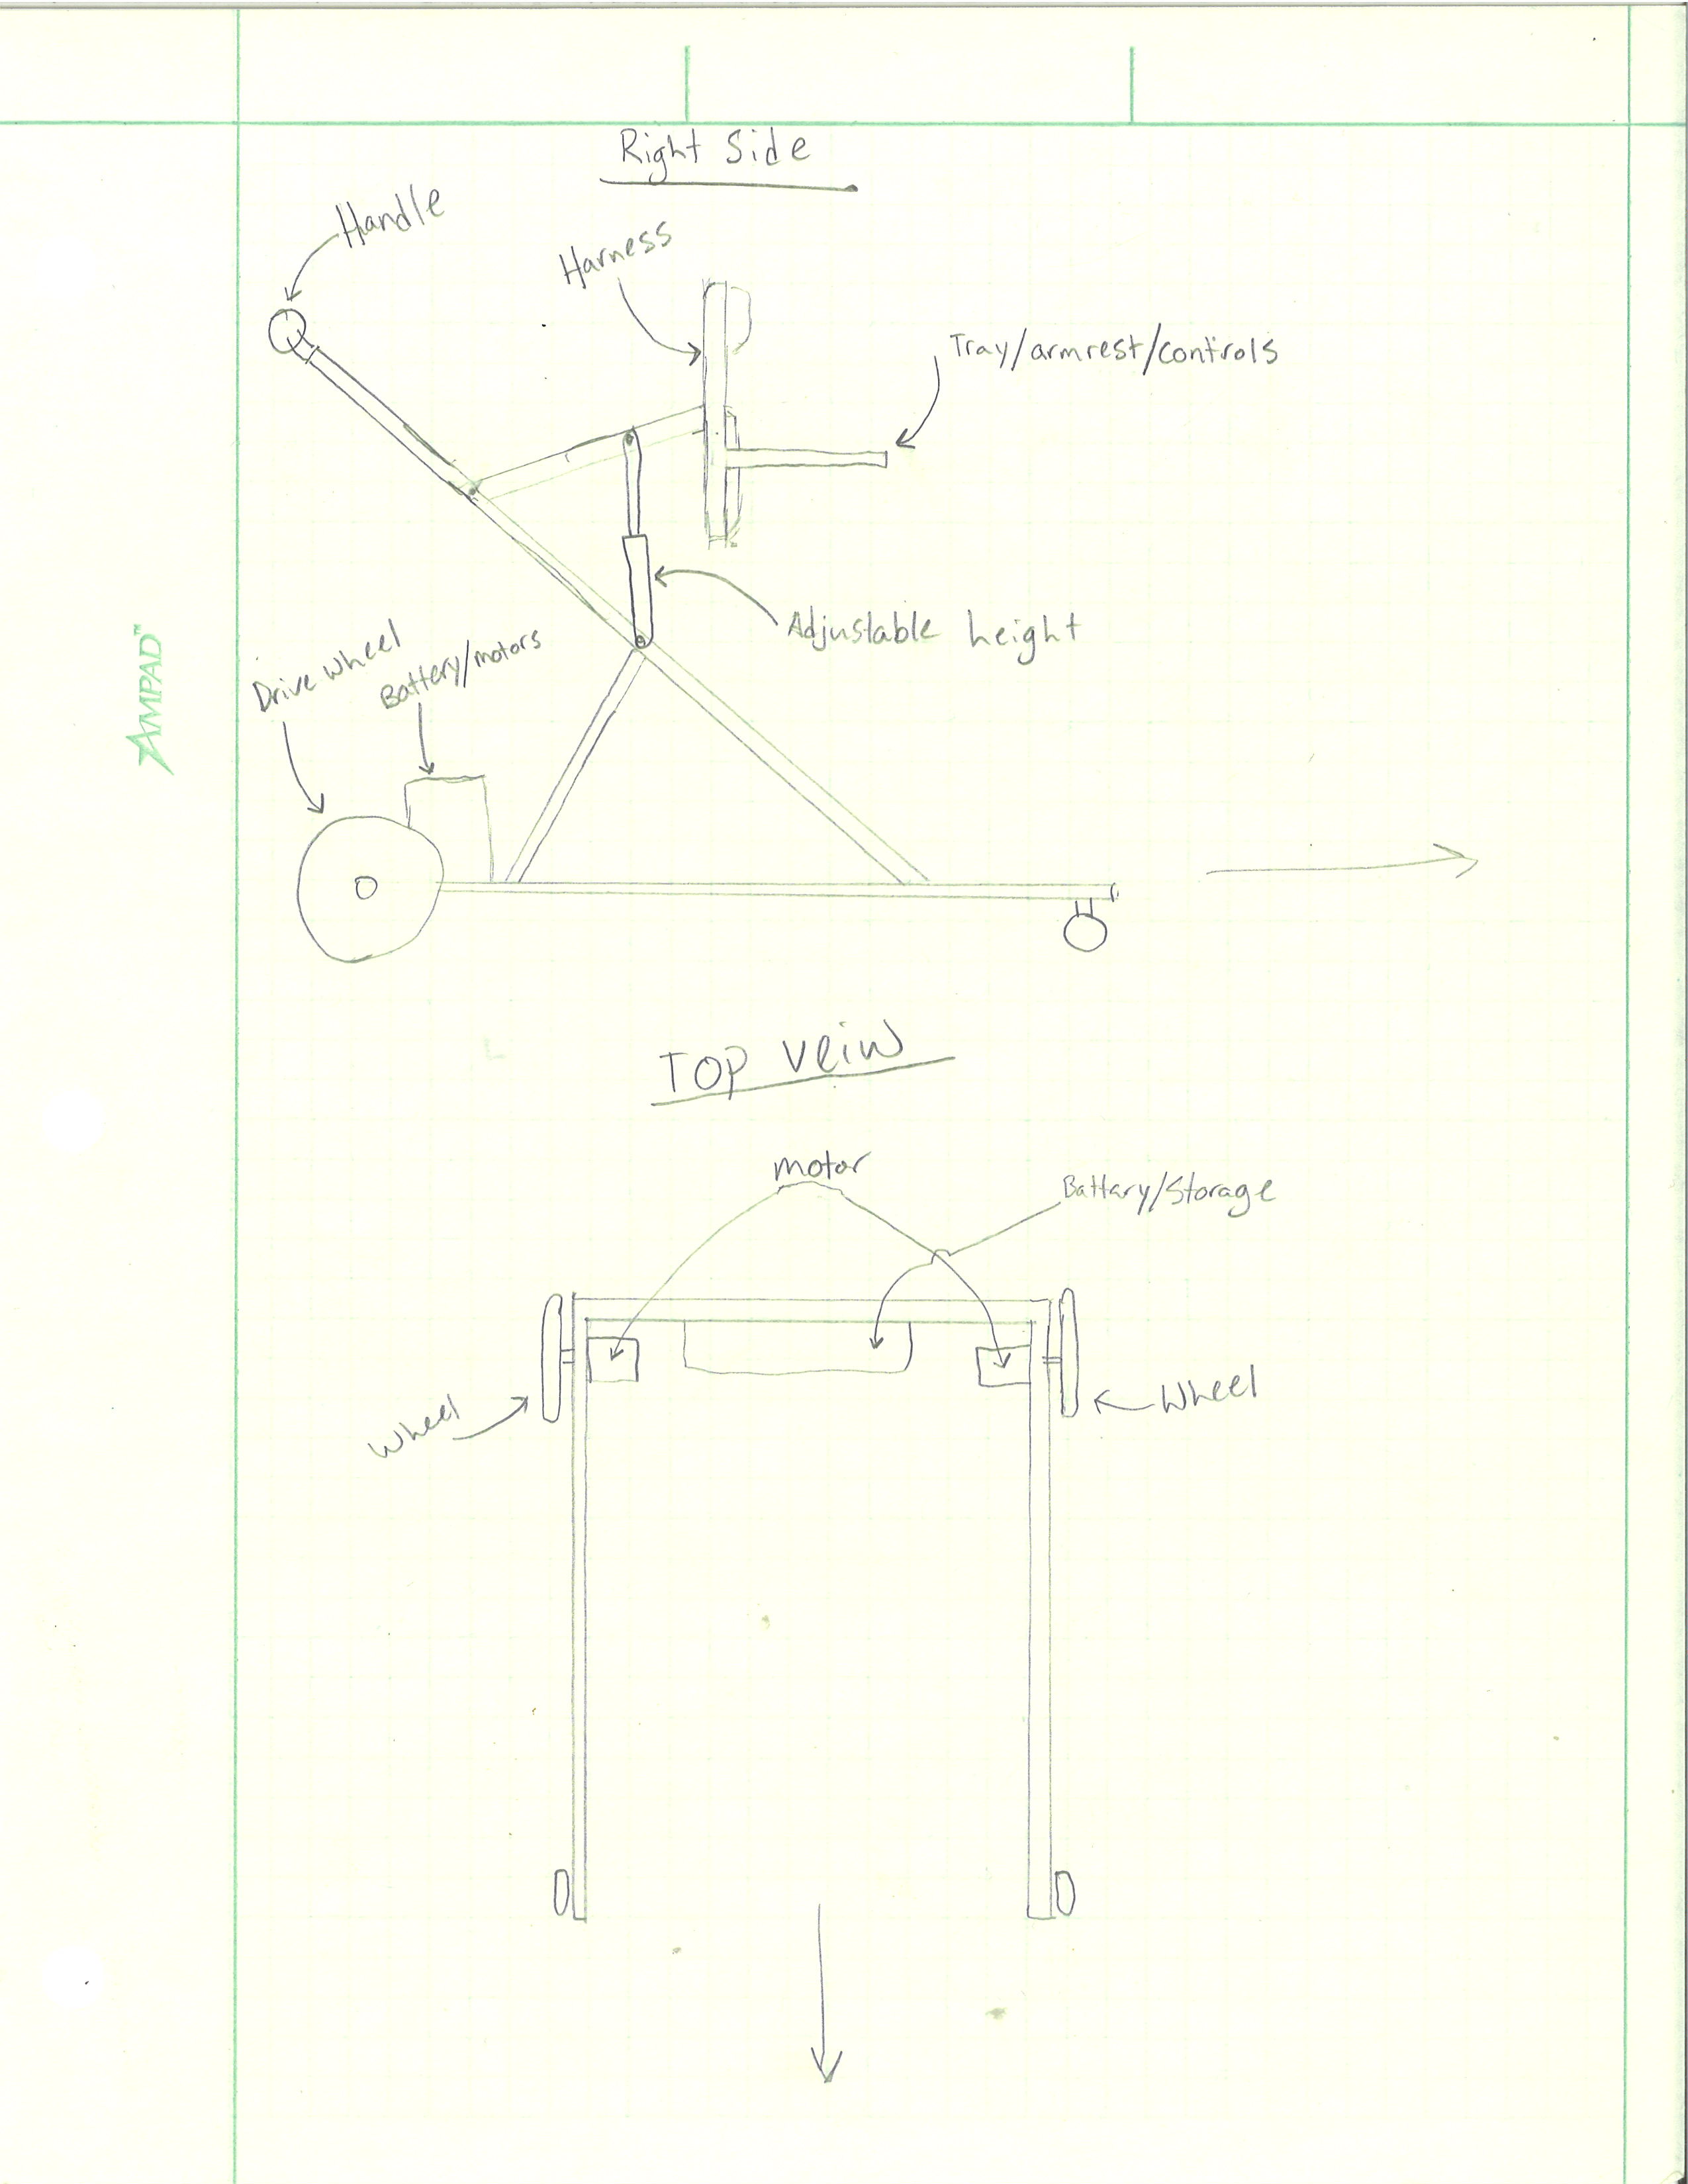 Right Side
Handle
Harness
Tray/armrest/controls
Adjustable height
Drive wheel
Battery/motors
AMPAD™
TOP veiw
motor
Battary/Storage
Wheel
Wheel